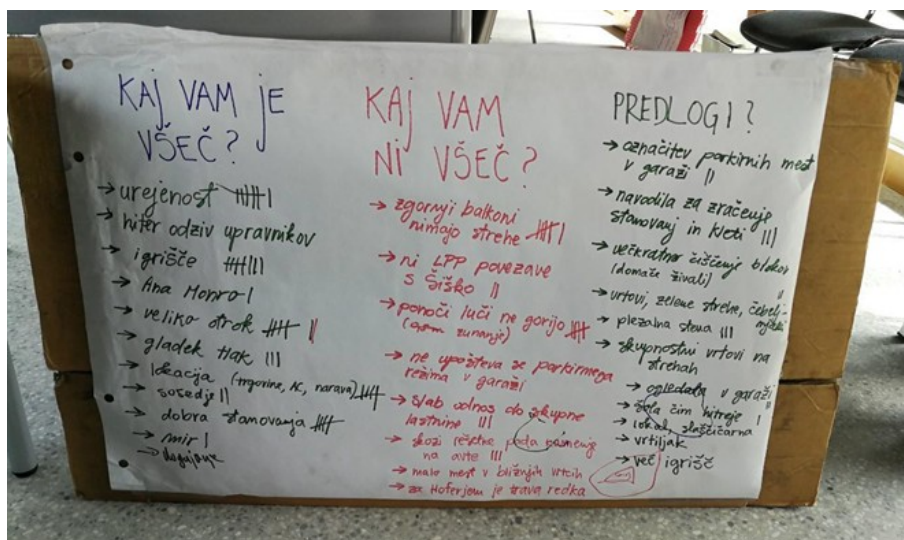 KAJ VAM JE
VŠEČ?
→ urejenost
→ hiter odziv upravnikov
→ igrišče
→ Ana Monro
→ veliko otrok
→ gladek tlak III
→ lokacija (trgovine, AC, narava)
→ sosedje II
→ dobra stanovanja
→ mir I
→ dogajanje
KAJ VAM
NI VŠEČ?
→ zgornji balkoni
nimajo strehe
→ ni LPP povezave
s Šiško II
→ ponoči luči ne gorijo
(zunanje)
→ ne upošteva se parkirnega
režima v garaži
→ slab odnos do skupne
lastnine III
→ skozi rešetke pada
na avte III
→ malo mest v bližnjih vrtcih
→ za Hoferjem je trava redka
PREDLOGI?
→ označitev parkirnih mest
v garaži II
→ navodila za zračenje
stanovanj in kleti III
→ večkratno čiščenje blokov
(domače živali)
→ vrtovi, zelene strehe,
→ plezalna stena III
→ skupnostni vrtovi na
strehah
→ ogledala v garaži II
→ šola čim hitreje I
→ lokal, slaščičarna
→ vrtiljak
→ več igrišč